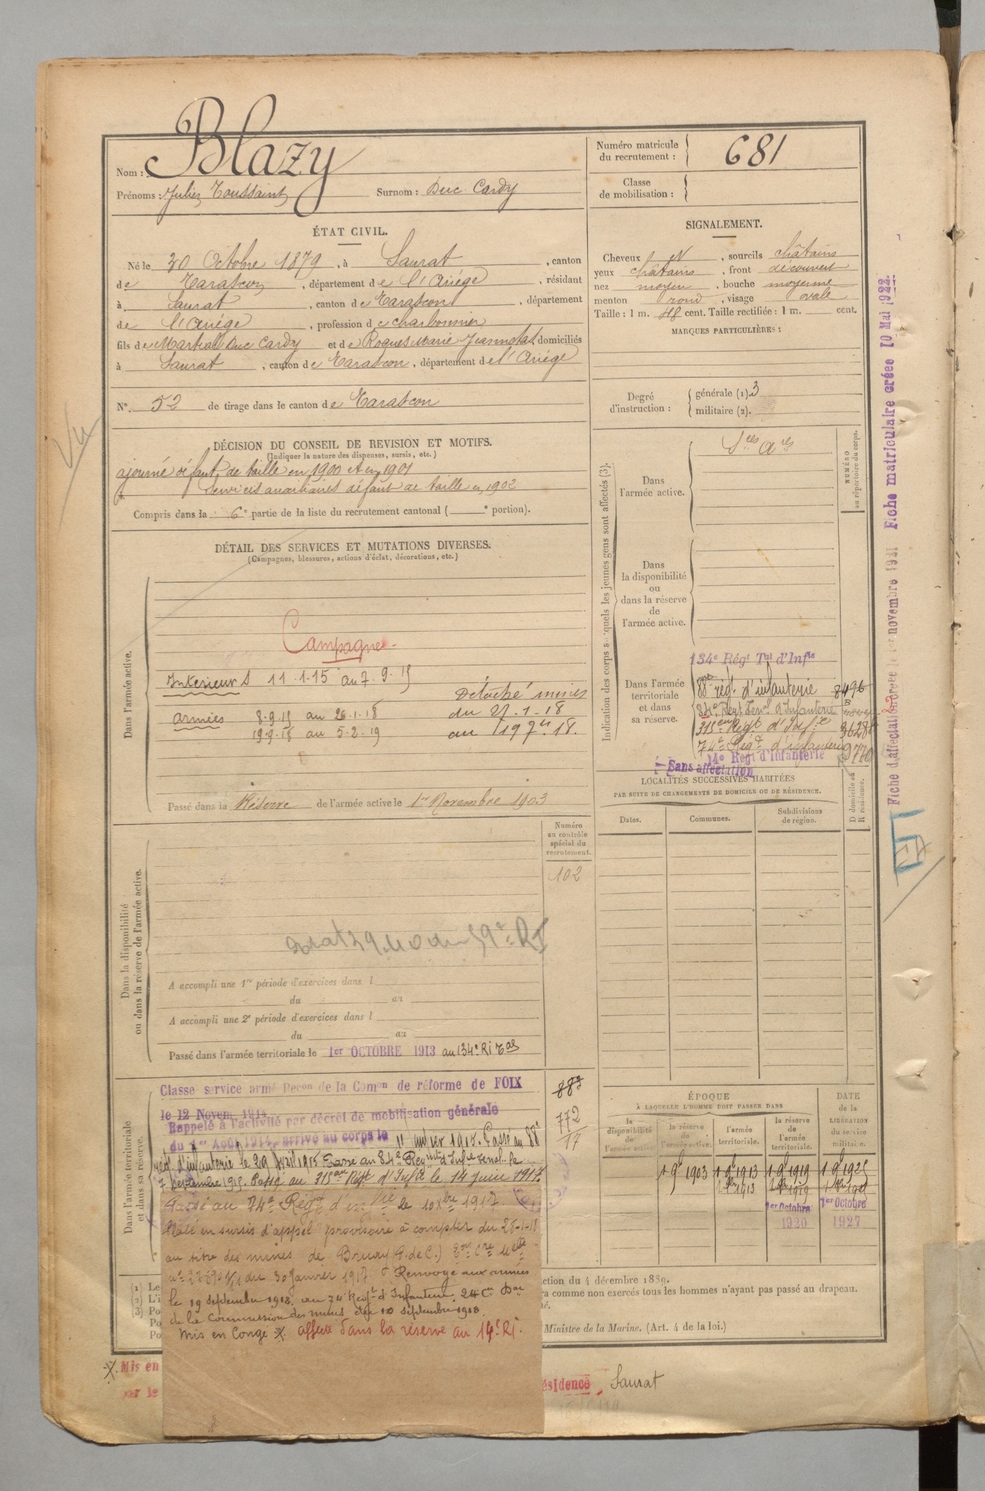 Nom : Blazy
Prénoms : Jules Toussaint Surnom : Duc Cardy
Numéro matricule
du recrutement : 681
Classe
de mobilisation :
ÉTAT CIVIL.
Né le 30 Octobre 1879, à Saurat, canton
de Tarascon, département de l'Ariège, résidant
à Saurat, canton de Tarascon, département
de l'Ariège, profession de charbonnier
fils de Martial Duc Cardy et de Roques Marie domiciliés
à Saurat, canton de Tarascon, département de l'Ariège
N° 52 de tirage dans le canton de Tarascon
SIGNALEMENT.
Cheveux N, sourcils châtains
yeux châtains, front découvert
nez moyen, bouche moyenne
menton rond, visage ovale
Taille : 1 m. 48 cent. Taille rectifiée : 1 m. cent.
MARQUES PARTICULIÈRES :
Degré
d'instruction :
générale (1). 3
militaire (2).
Vu
DÉCISION DU CONSEIL DE REVISION ET MOTIFS.
(Indiquer la nature des dispenses, sursis, etc.)
ajourné défaut de taille en 1900 et en 1901
Services auxiliaires défaut de taille en 1902
Compris dans la 6e partie de la liste du recrutement cantonal ( e portion).
DÉTAIL DES SERVICES ET MUTATIONS DIVERSES.
(Campagnes, blessures, actions d'éclat, décorations, etc.)
Dans l'armée active.
Campagnes
Intérieur 11.1.15 au 7.9.15
armées 8.9.15 au 26.1.18
19.9.18 au 5.2.19
Détaché mines
du 27.1.18
au 19 7bre 18.
Passé dans la Réserve de l'armée active le 1er Novembre 1903
Indication des corps auxquels les jeunes gens sont affectés (3).
NUMÉRO
au répertoire du corps.
Dans
l'armée active.
Dans
la disponibilité
ou
dans la réserve
de
l'armée active.
Dans l'armée
territoriale
et dans
sa réserve.
134e Régt Tal d'Infie
88e rég. d'infanterie 8496
84e Régt Terr. d'Infanterie
315eme Regt d'Infie
74e Régt d'infanterie
14e Regt d'Infanterie
Sans affectation
Fiche matriculaire créée 10 Mai 1922.
LOCALITÉS SUCCESSIVES HABITÉES
PAR SUITE DE CHANGEMENTS DE DOMICILE OU DE RÉSIDENCE.
Dates.
Communes.
Subdivisions
de région.
D domicile ou
R résidence.
Dans la disponibilité
ou dans la réserve de l'armée active.
Numéro
au contrôle
spécial du
recrutement.
102
A accompli une 1re période d'exercices dans l
du au
A accompli une 2e période d'exercices dans l
du au
Passé dans l'armée territoriale le 1er OCTOBRE 1913 au 134e RI Tal
Dans l'armée territoriale
et dans sa réserve.
Classe service armé Décon de la Comon de réforme de FOIX
le 12 Novem. 1914
Rappelé à l'activité par décret de mobilisation générale
du 1er Août 1914, arrivé au corps le 11 janvier 1915. Passé au 88e
régt d'infanterie le 29 Avril 1915 Passé au 84e Regiment d'Infie terral le
7 Septembre 1915. Passé au 315eme Regt d'Infie le 14 juin 1917.
Passé au 74e Régt d'infie le 10 Xbre 1917
Placé en sursis d'appel provisoire à compter du 26-1-18
au titre des mines de Bruay (P. de C.)
du 30 Janvier 1917 Renvoyé aux armées
le 19 septembre 1918, au 74e Regt d'Infanterie
de la Commission des mines du 10 septembre 1918
Mis en Congé X affecté dans la réserve au 14e RI.
772
ÉPOQUE
À LAQUELLE L'HOMME DOIT PASSER DANS
la
disponibilité
de
l'armée active.
la réserve
de
l'armée active.
l'armée
territoriale.
la réserve
de
l'armée
territoriale.
DATE
de la
LIBÉRATION
du service
militaire.
1 9b 1903 1 9b 1913 1 9b 1919 1 9b 1925
1er Octobre 1er Octobre
1920 1927
ction du 4 décembre 1889.
ra comme non exercés tous les hommes n'ayant pas passé au drapeau.
Ministre de la Marine. (Art. 4 de la loi.)
X. Mis en
par le
résidence, Saurat